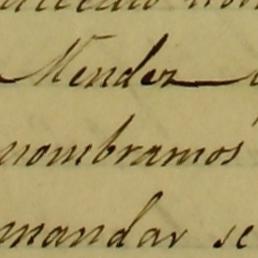 Mendez
nombramos
mandar se